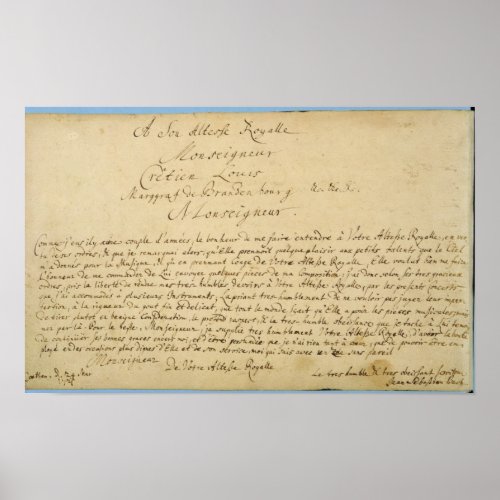 A Son Altesse Royalle
Monseigneur
Crêtien Louis
Marggraf de Brandenbourg &c. &c. &c.
Monseigneur.
Comme j'eus il y a une couple d'années, le bonheur de me faire entendre à Votre Altesse Royalle, en vertu
de ses ordres, & que je remarquai alors, qu'Elle prennoit quelque plaisir aux petits talents que le Ciel
m'a donnés pour la Musique, & qu'en prennant Conge de Votre Altesse Royalle, Elle voulut bien me faire
l'honneur de me commander de Lui envoyer quelques pieces de ma Composition: j'ai donc selon ses tres gracieux
ordres, pris la liberté de rendre mes tres-humbles devoirs à Votre Altesse Royalle, par les presents Concerts,
que j'ai accommodés à plusieurs Instruments; La priant tres-humblement de ne vouloir pas juger leur imper-
fection, à la rigueur du gout fin et delicat, que tout le monde sçait qu'Elle a pour les pièces musicales; mais
de tirer plutot en benigne Consideration, le profond respect, & la tres-humble obeissance que je tache à Lui temoi-
gner par là. Pour le reste, Monseigneur, je supplie tres humblement Votre Altesse Royalle, d'avoir la bonté
de continüer ses bonnes graces envers moi, et d'être persuadée que je n'ai rien tant à cœur, que de pouvoir être em-
ployé en des occasions plus dignes d'Elle et de son service, moi qui suis avec un zele sans pareil
Monseigneur
De Votre Altesse Royalle
Coethen. d. 24 Mar
1721
Le tres humble & tres obeissant serviteur
Jean Sebastien Bach.